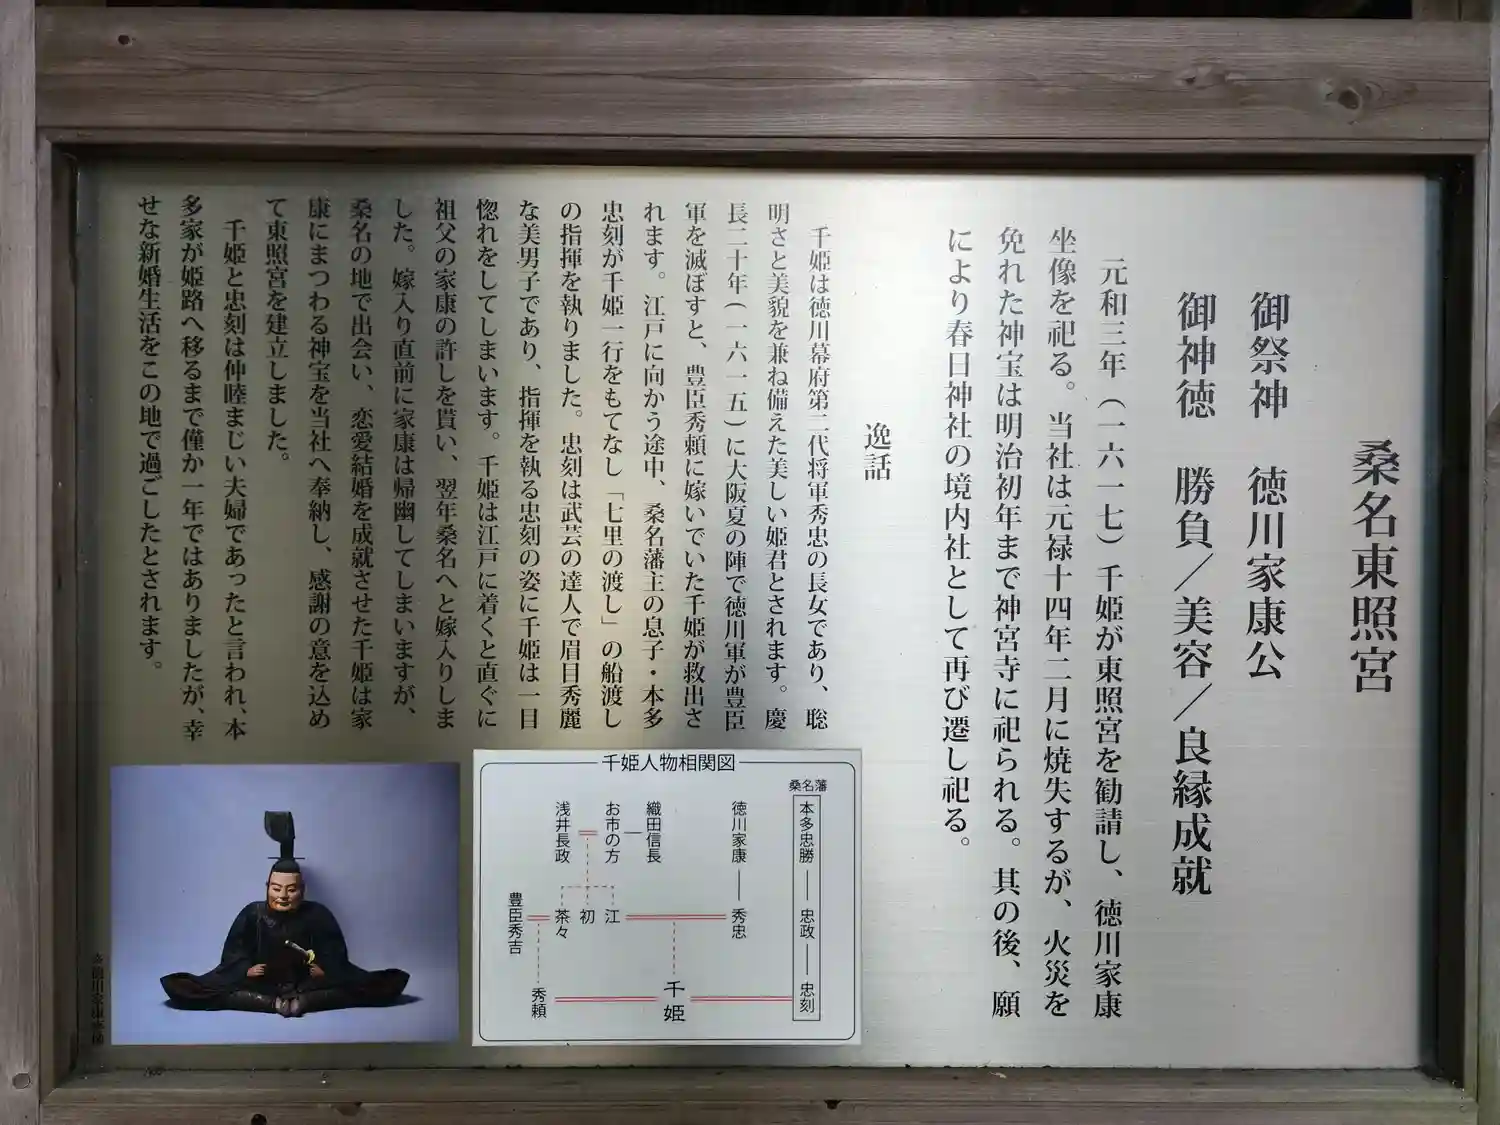 桑名東照宮
御祭神　徳川家康公
御神徳　勝負／美容／良縁成就
元和三年（一六一七）千姫が東照宮を勧請し、徳川家康
坐像を祀る。当社は元禄十四年二月に焼失するが、火災を
免れた神宝は明治初年まで神宮寺に祀られる。其の後、願
により春日神社の境内社として再び遷し祀る。
逸話
千姫は徳川幕府第二代将軍秀忠の長女であり、聡
明さと美貌を兼ね備えた美しい姫君とされます。慶
長二十年(一六一五)に大阪夏の陣で徳川軍が豊臣
軍を滅ぼすと、豊臣秀頼に嫁いでいた千姫が救出さ
れます。江戸に向かう途中、桑名藩主の息子・本多
忠刻が千姫一行をもてなし「七里の渡し」の船渡し
の指揮を執りました。忠刻は武芸の達人で眉目秀麗
な美男子であり、指揮を執る忠刻の姿に千姫は一目
惚れをしてしまいます。千姫は江戸に着くと直ぐに
祖父の家康の許しを貰い、翌年桑名へと嫁入りしま
した。嫁入り直前に家康は帰幽してしまいますが、
桑名の地で出会い、恋愛結婚を成就させた千姫は家
康にまつわる神宝を当社へ奉納し、感謝の意を込め
て東照宮を建立しました。
千姫と忠刻は仲睦まじい夫婦であったと言われ、本
多家が姫路へ移るまで僅か一年ではありましたが、幸
せな新婚生活をこの地で過ごしたとされます。
千姫人物相関図
桑名藩
本多忠勝
忠政
忠刻
徳川家康
秀忠
千姫
織田信長
お市の方
浅井長政
江
初
茶々
豊臣秀吉
秀頼